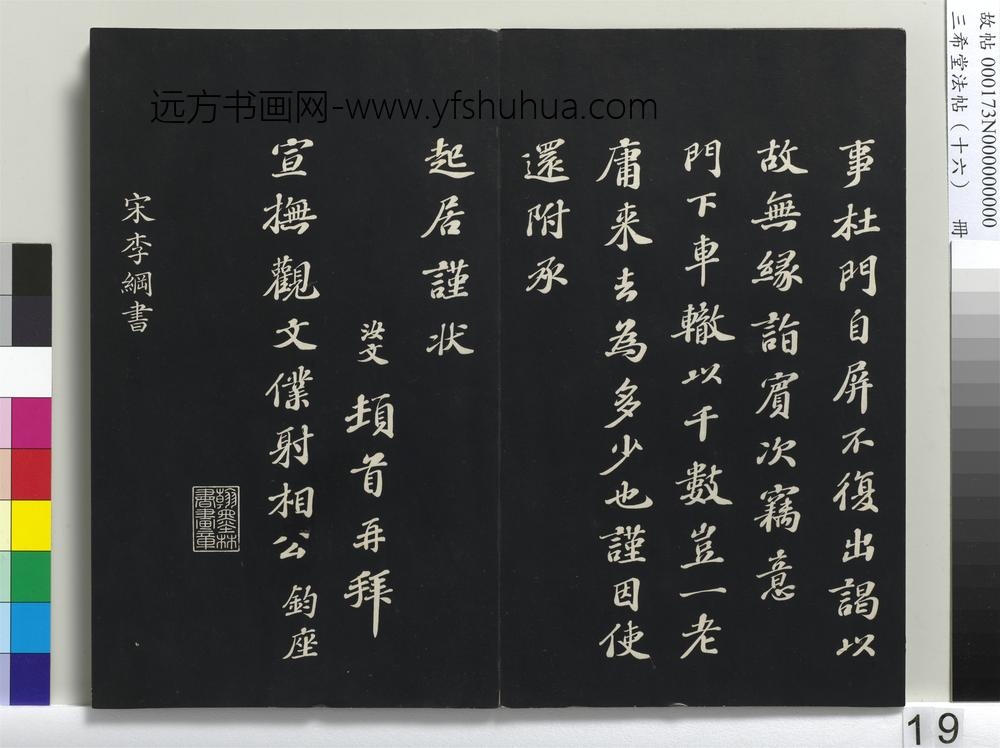 故帖 000173N000000000
三希堂法帖(十六) 冊
远方书画网-www.yfshuhua.com
事杜門自屏不復出謁以
故無縁詣賓次竊意
門下車轍以千數豈一老
庸来去為多少也謹因使
還附承
起居謹状
汝文 頓首再拜
宣撫觀文僕射相公 鈞座
宋李綱書
翰墨林
書畫章
19